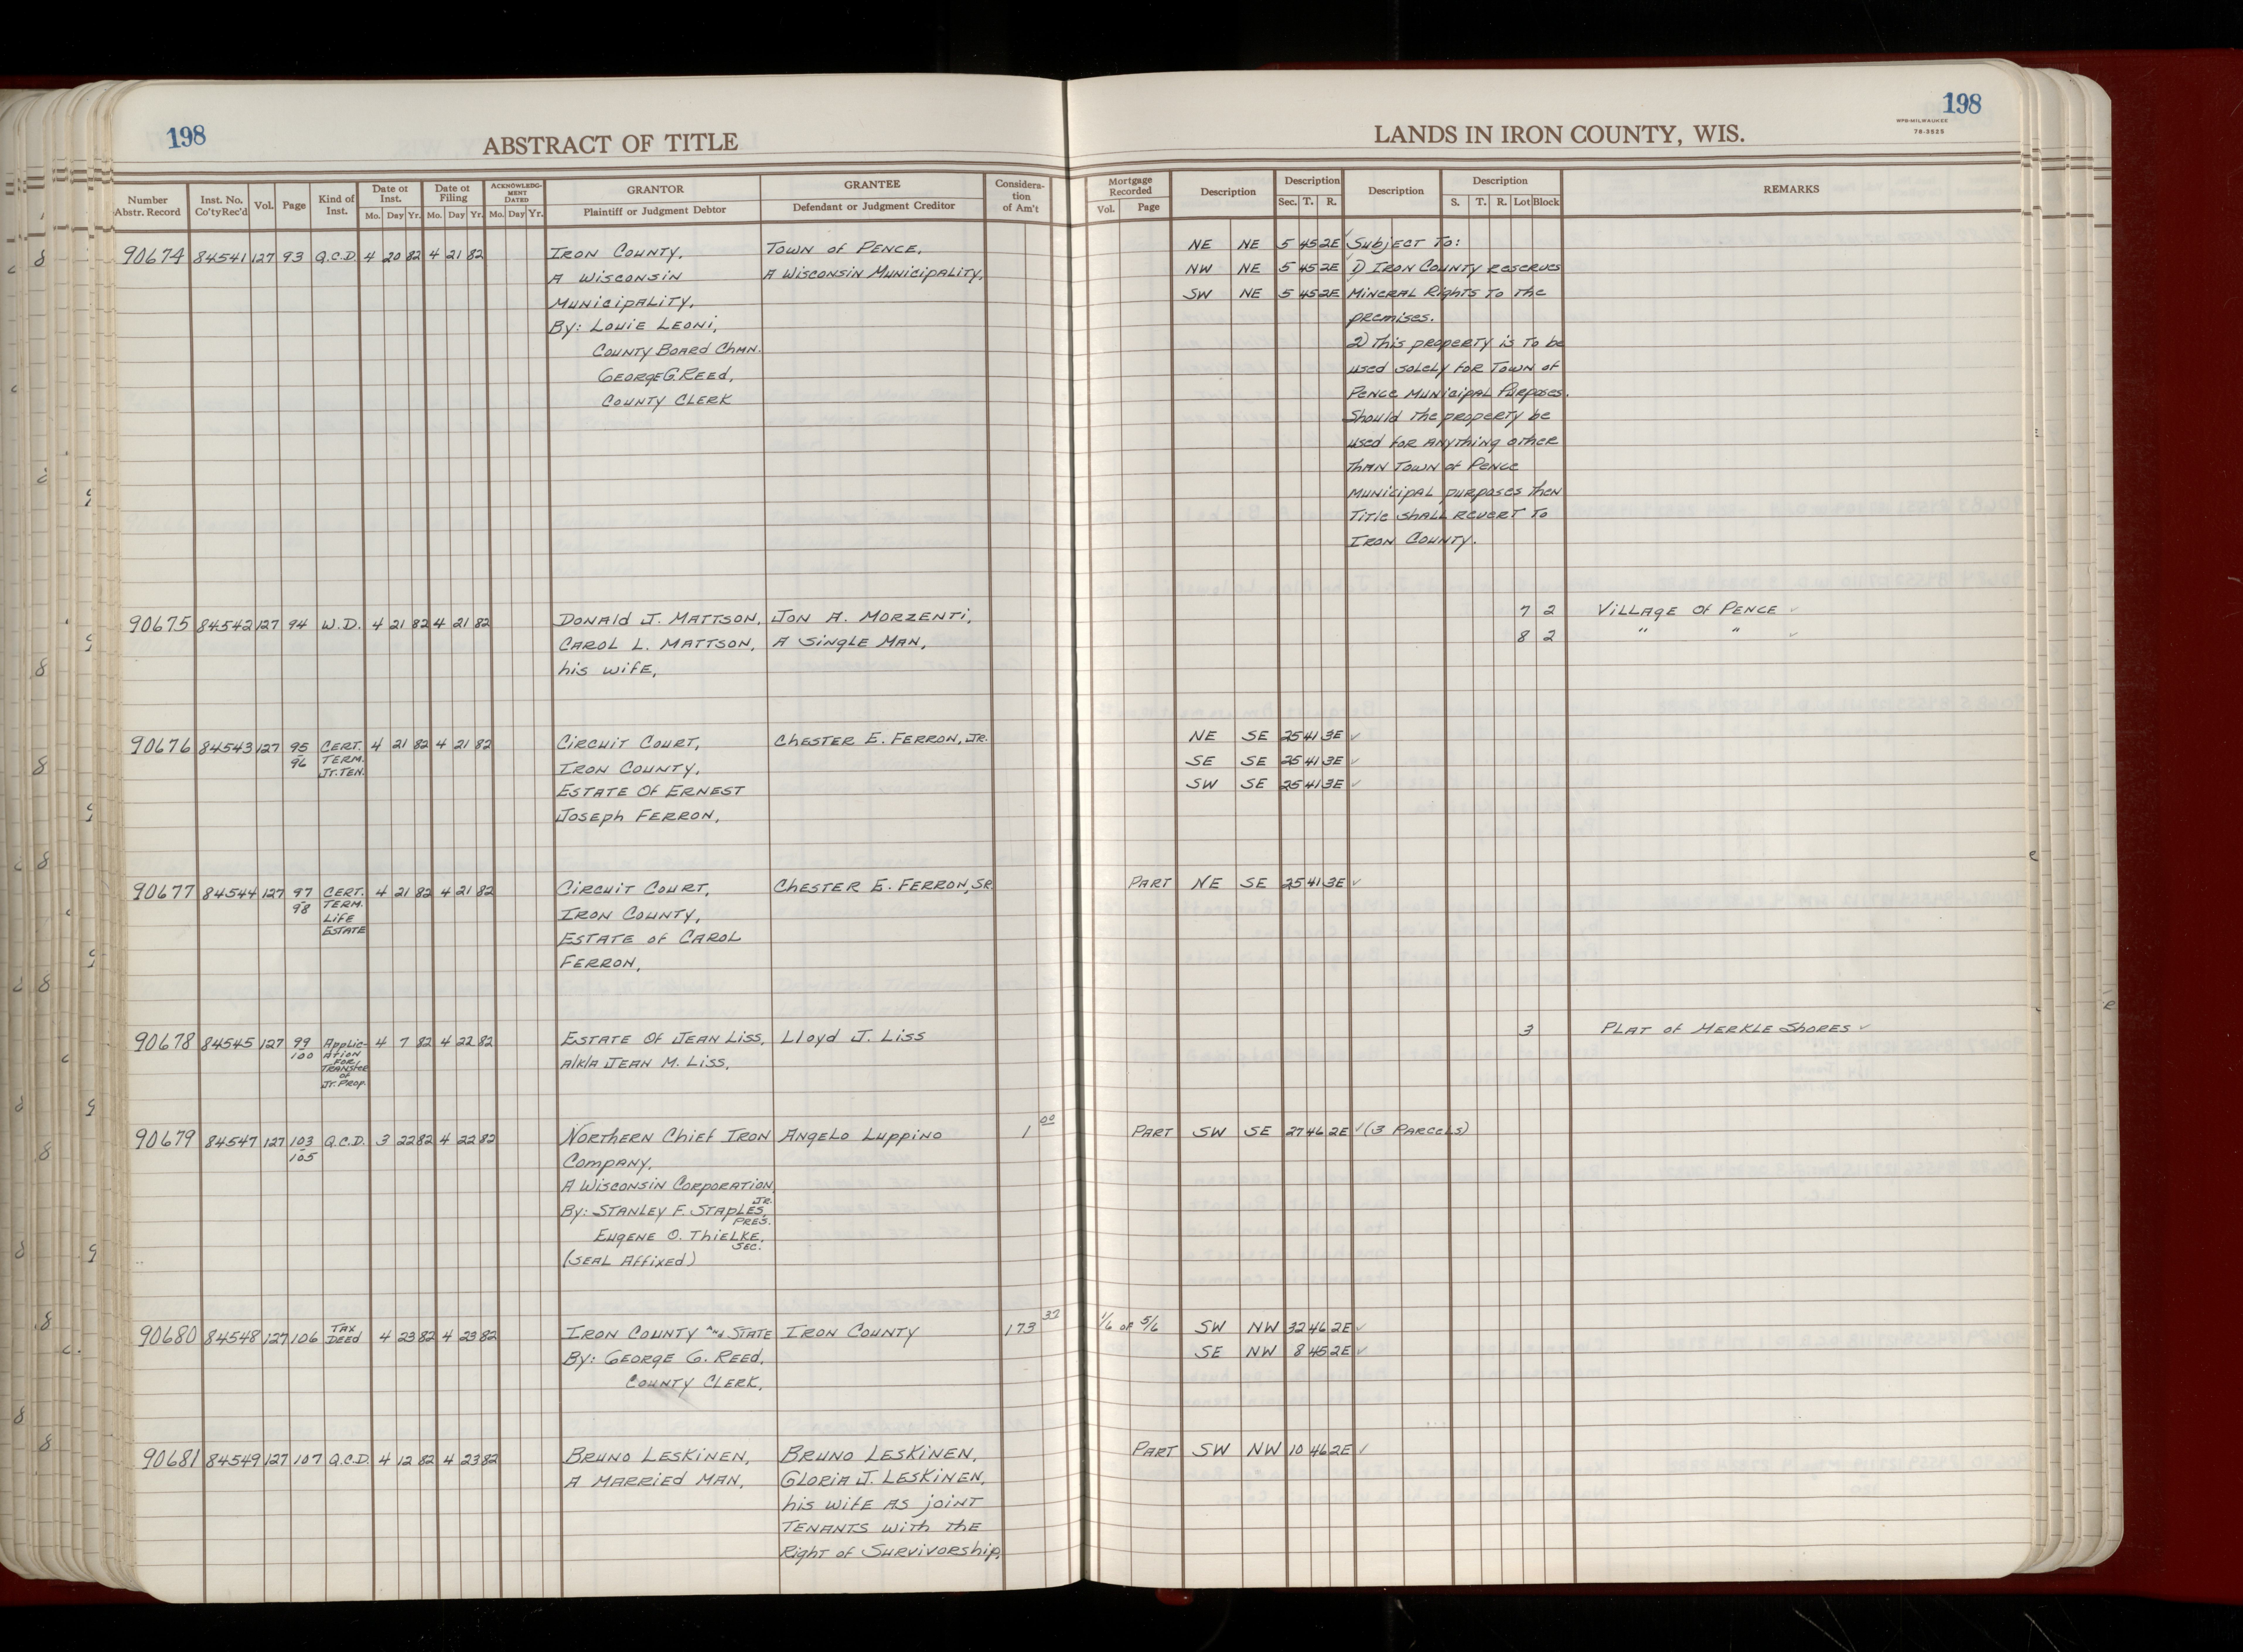 198
ABSTRACT OF TITLE
LANDS IN IRON COUNTY, WIS.
198
WPB-MILWAUKEE
78-3525
Number Abstr. Record | Inst. No. Co'ty Rec'd | Vol. | Page | Kind of Inst. | Date of Inst. Mo. Day Yr. | Date of Filing Mo. Day Yr. | ACKNOWLEDGMENT DATED Mo. Day Yr. | GRANTOR Plaintiff or Judgment Debtor | GRANTEE Defendant or Judgment Creditor | Consideration of Am't | Mortgage Recorded Vol. Page | Description | Description Sec. T. R. | Description | Description S. T. R. Lot Block | REMARKS
90674 84541 127 93 Q.C.D. 4 20 82 4 21 82 IRON COUNTY, TOWN OF PENCE, NE NE 5 45 2E Subject To:
A WISCONSIN A WISCONSIN MUNICIPALITY, NW NE 5 45 2E 1) IRON COUNTY reserves
MUNICIPALITY, SW NE 5 45 2E MINERAL Rights To the
By: LOUIE LEONI, premises.
COUNTY BOARD CHMN. 2) This property is To be
GEORGE G. REED, used solely FOR TOWN of
COUNTY CLERK Pence Municipal Purposes.
Should the property be
used FOR ANYthing other
ThAN TOWN of Pence
MUNICIPAL purposes then
Title shALL REVERT To
IRON COUNTY.
90675 84542 127 94 W.D. 4 21 82 4 21 82 DONALD J. MATTSON, JON A. MORZENTI, 7 2 VILLAGE OF PENCE ✓
CAROL L. MATTSON, A SINGLE MAN, 8 2 " " ✓
his WIFE,
90676 84543 127 95 CERT. 4 21 82 4 21 82 CIRCUIT COURT, CHESTER E. FERRON, JR. NE SE 25 41 3E ✓
96 TERM. IRON COUNTY, SE SE 25 41 3E ✓
JT. TEN. ESTATE OF ERNEST SW SE 25 41 3E ✓
JOSEPH FERRON,
90677 84544 127 97 CERT. 4 21 82 4 21 82 CIRCUIT COURT, CHESTER E. FERRON, SR PART NE SE 25 41 3E ✓
98 TERM. IRON COUNTY,
LIFE ESTATE OF CAROL
ESTATE FERRON,
90678 84545 127 99 Applic- 4 7 82 4 22 82 ESTATE OF JEAN LISS, Lloyd J. LISS 3 PLAT OF MERKLE SHORES ✓
100 ATION a/k/a JEAN M. LISS,
FOR
TRANSFER
OF
JT. PROP.
90679 84547 127 103 Q.C.D. 3 22 82 4 22 82 NORTHERN CHIEF IRON ANGELO LUPPINO 1 00 PART SW SE 27 46 2E ✓ (3 PARCELS)
105 COMPANY,
A WISCONSIN CORPORATION
By: STANLEY F. STAPLES, JR.
PRES.
EUGENE O. THIELKE,
SEC.
(SEAL AFFIXED)
90680 84548 127 106 TAX DEED 4 23 82 4 23 82 IRON COUNTY And STATE IRON COUNTY 173 32 1/6 OF 5/6 SW NW 32 46 2E ✓
By: GEORGE G. REED, SE NW 8 45 2E ✓
COUNTY CLERK,
90681 84549 127 107 Q.C.D. 4 12 82 4 23 82 BRUNO LESKINEN, BRUNO LESKINEN, PART SW NW 10 46 2E ✓
A MARRIED MAN, GLORIA J. LESKINEN,
his WIFE AS JOINT
TENANTS WITH THE
Right of SURVIVORship,